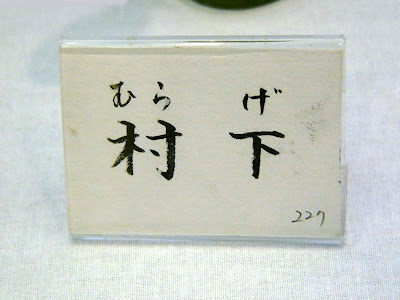 むら げ
村下
227